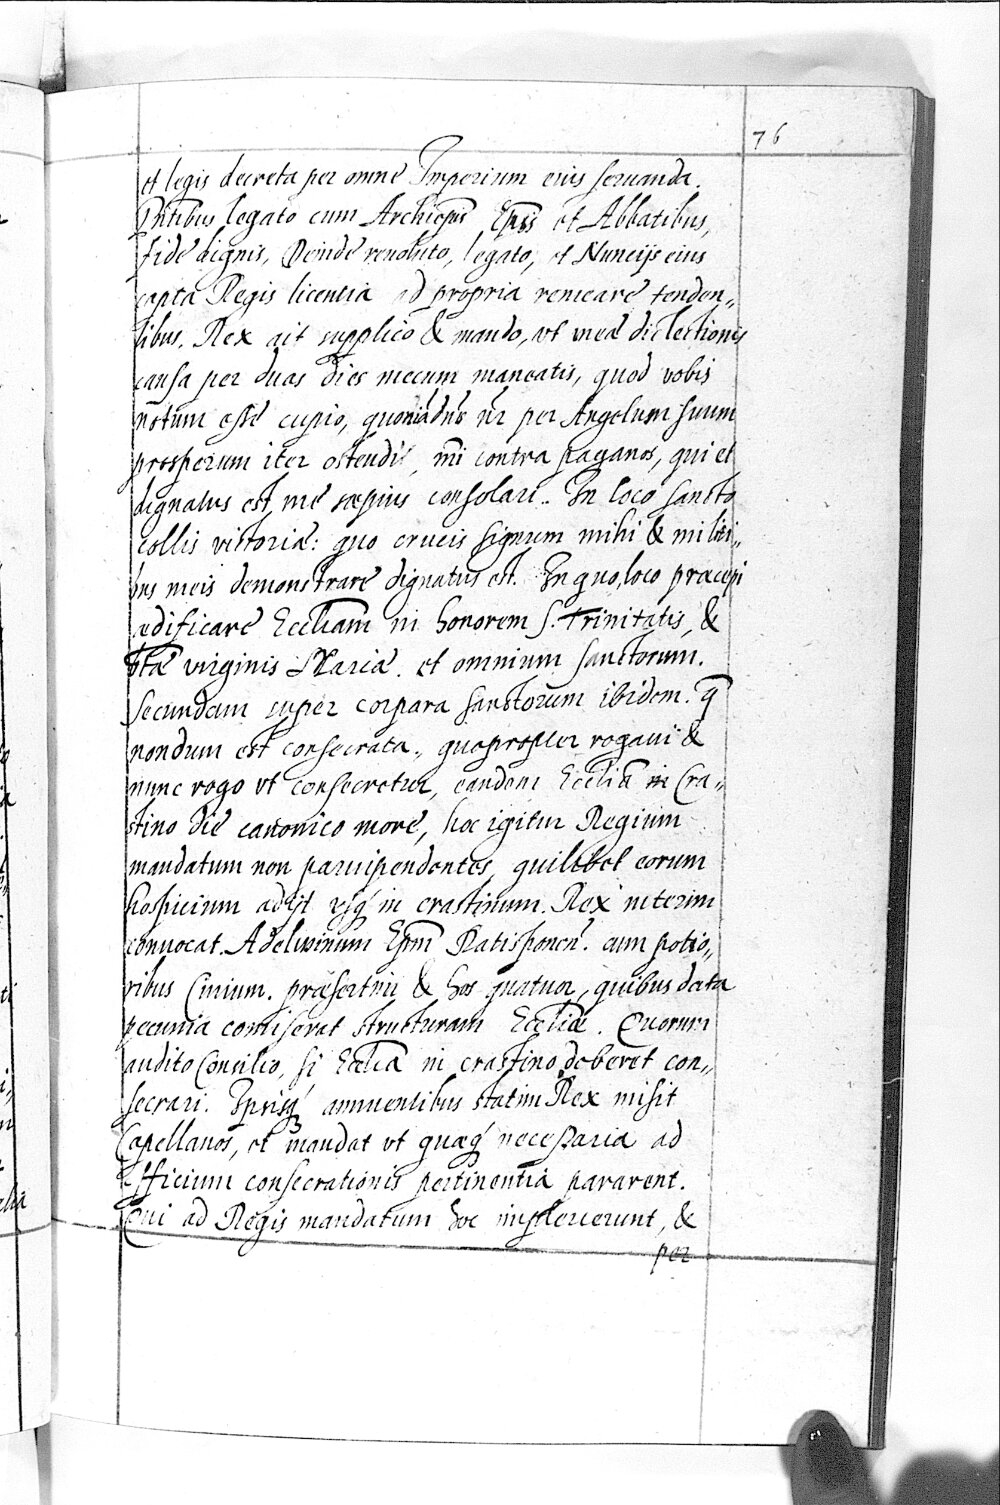 76
et legis decreta per omne Imperium eius seruanda.
Pntibus legato cum Archiepis Epis et Abbatibus,
fide dignis, Deinde reuoluto, legato, et Nuncijs eius
capta Regis licentia ad propria remeare tenden„
tibus. Rex ait supplico & mando, vt meae dilectionis
causa per duas dies mecum maneatis, quod vobis
notum esse cupio, quoniā dns nr per Angelum suum
prosperum iter ostendit mi contra paganos, qui et
dignatus est me saepius consolari. In loco sancto
collis victoriae: quo crucis signum mihi & militi„
bus meis demonstrare dignatus est. In quo, loco praecepi
aedificare Eccliam in honorem S. Trinitatis, &
btae virginis Mariae. et omnium sanctorum.
Secundam super corpara sanctorum ibidem. q
nondum est consecrata., quapropter rogaui &
nunc rogo vt consecretur, eandem Eccliā in Cra„
stino die canonico more, hoc igitur Regium
mandatum non paruipendentes, quilibet eorum
hospicium adijt vsq in crastinum. Rex interim
conuocat. Adelwinum Epm Ratisponen. cum potio„
ribus Ciuium. praesertim & hos quatuor, quibus data
pecunia comiserat structuram Eccliae. Quorum
audito Consilio, si Ecclia in crastino deberet con„
secrari. Ipsisq annuentibus statim Rex misit
Capellanos, et mandat vt quaeq necessaria ad
officium consecrationis pertinentia pararent.
Qui ad Regis mandatum hoc impleuerunt, &
per